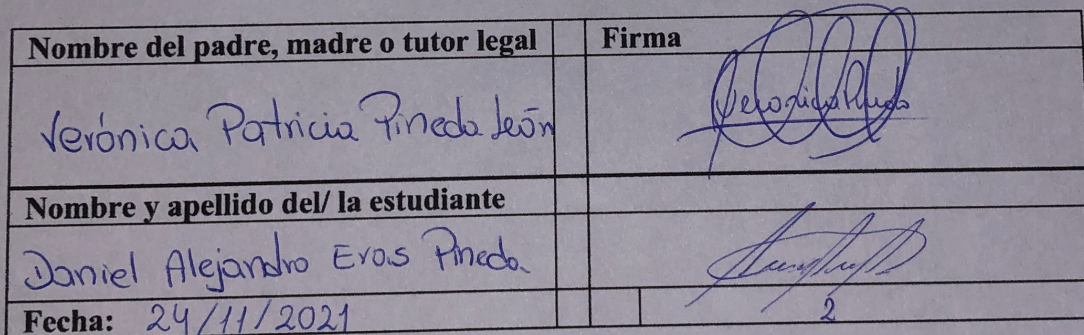 Nombre del padre, madre o tutor legal Firma
Verónica Patricia Pineda León Veronica Pineda
Nombre y apellido del/ la estudiante
Daniel Alejandro Eras Pineda.
Fecha: 24/11/2021 2